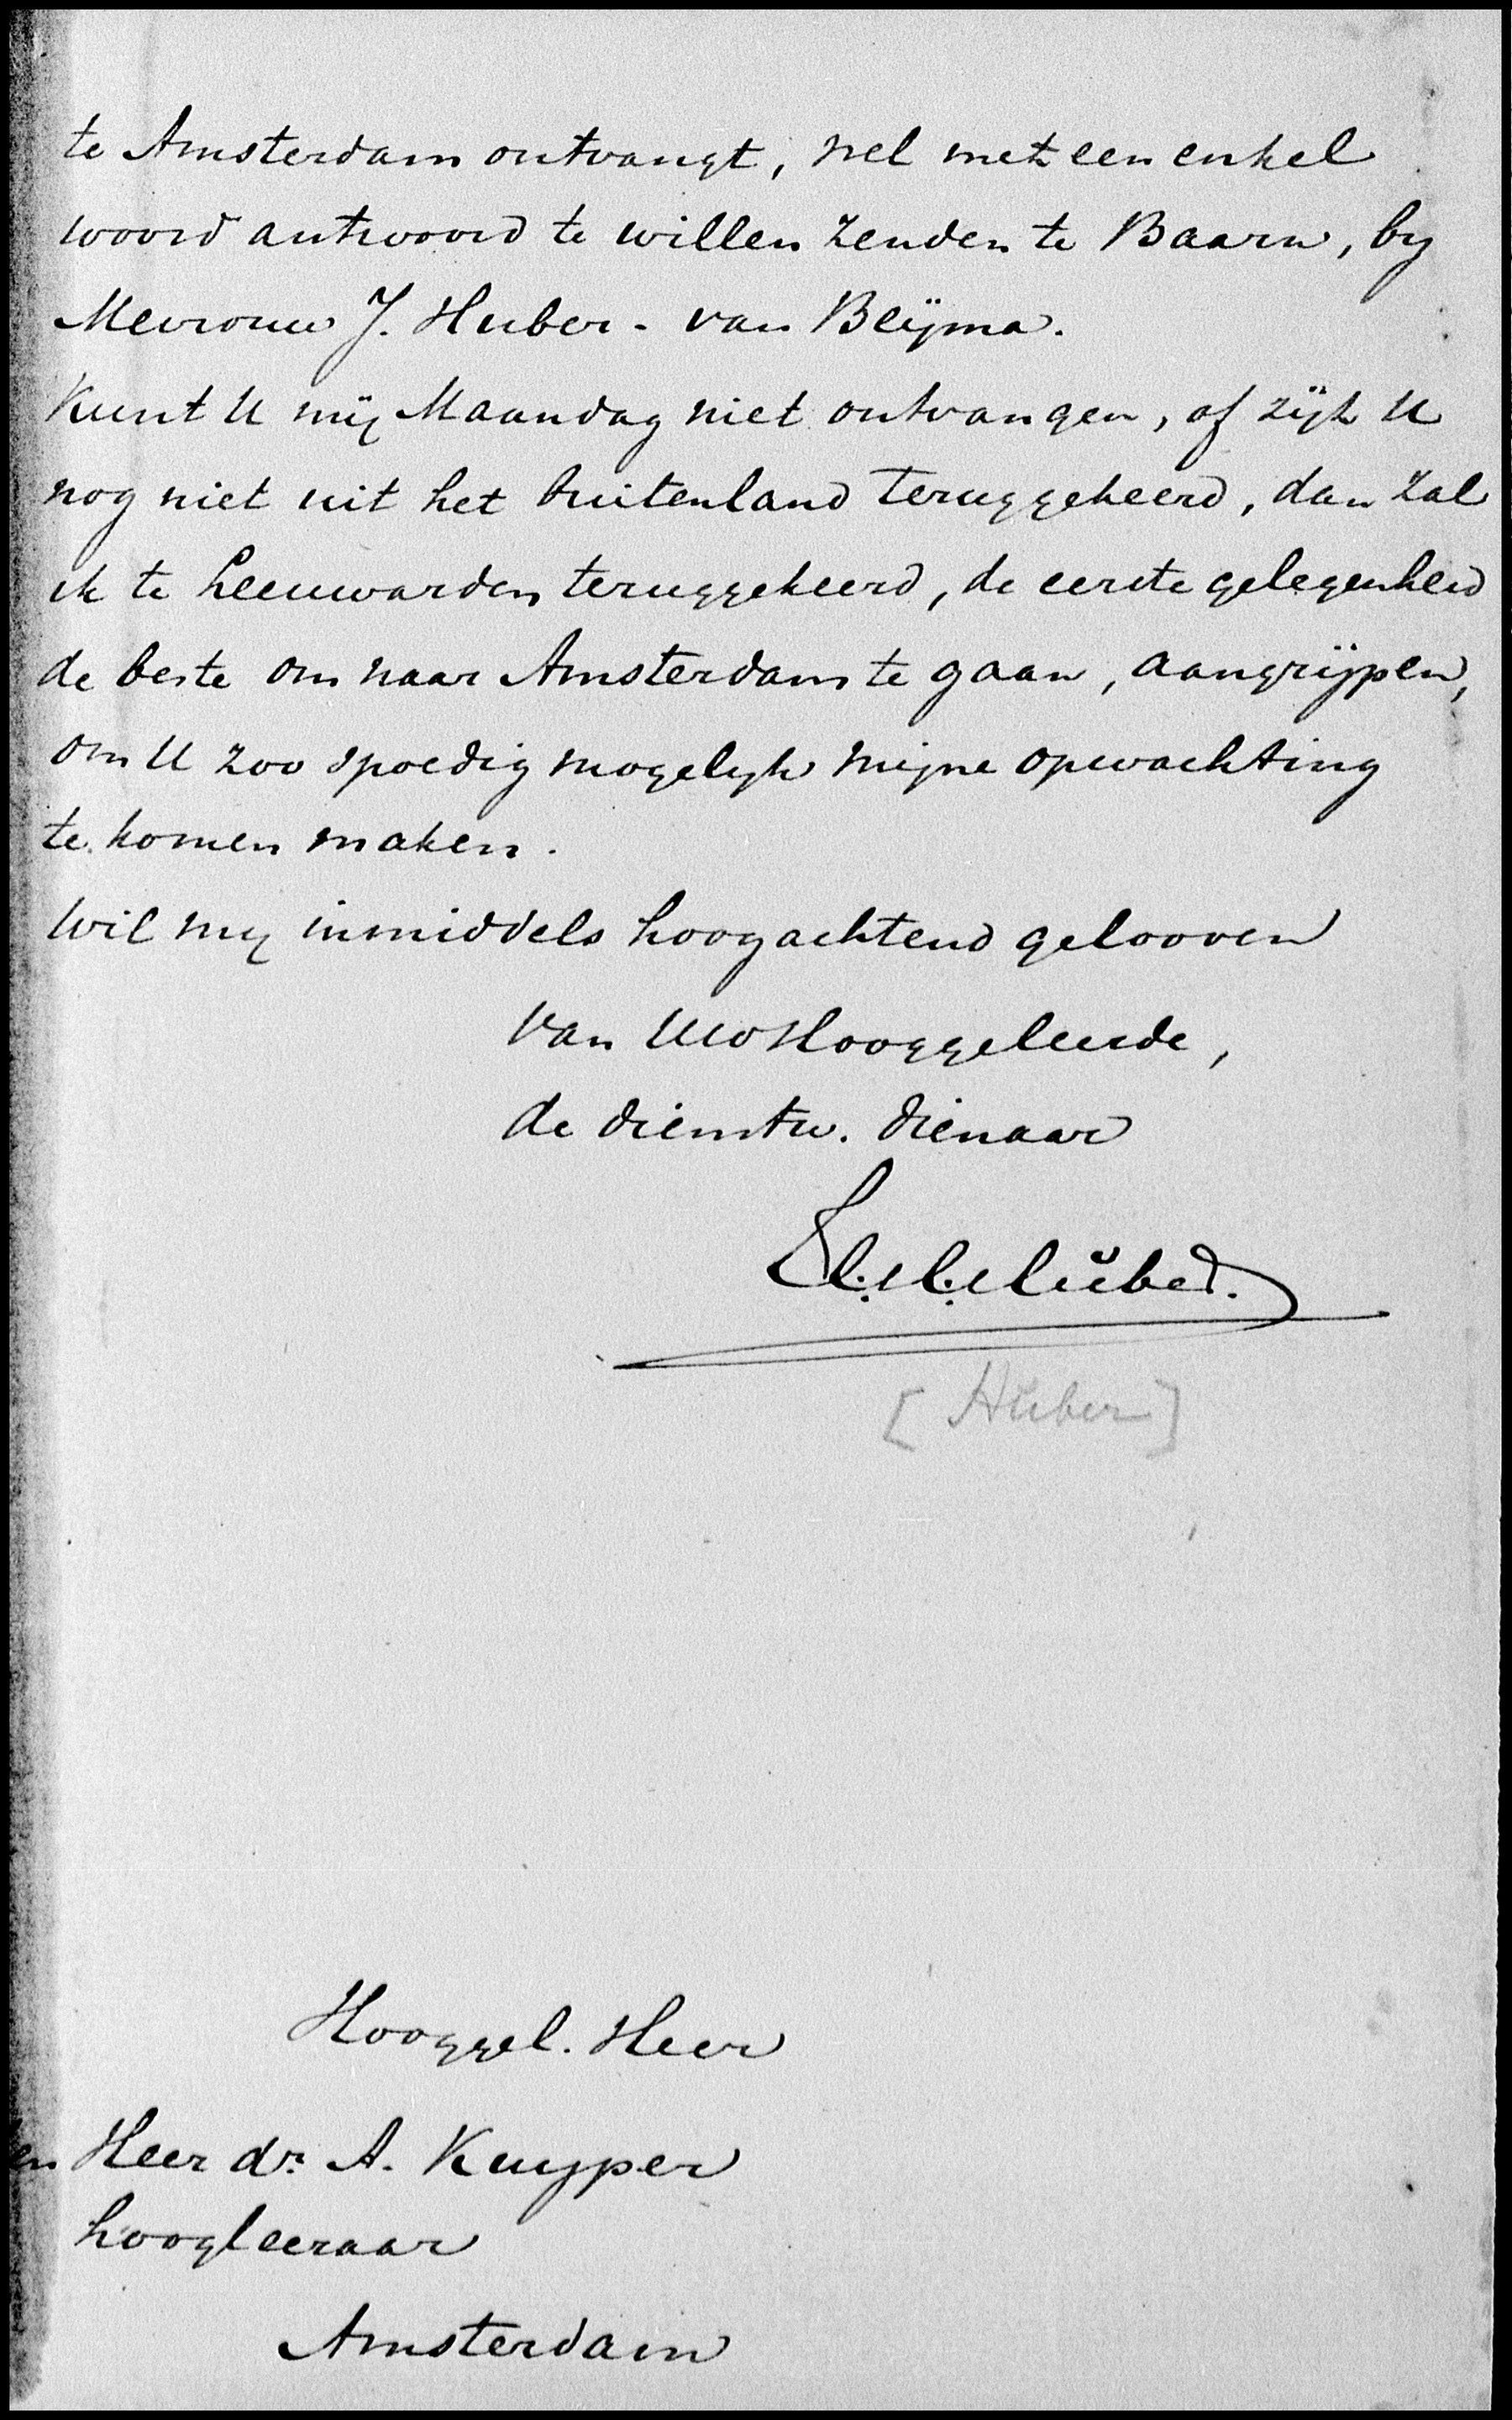 te Amsterdam ontvangt, wel met een enkel
woord antwoord te willen zenden te Baarn, by
Mevrouw J. Huber - van Beÿma.
Kunt U mij Maandag niet ontvangen, of zijt U
nog niet uit het buitenland teruggekeerd, dan zal
ik te Leeuwarden teruggekeerd, de eerste gelegenheid
de beste om naar Amsterdam te gaan, aangrijpen,
om U zoo spoedig mogelyk mijne opwachting
te komen maken.
Wil my inmiddels hoogachtend gelooven
van UwHooggeleerde,
de dienstw. dienaar
Huber.
[Huber]
Hooggel. Heer
en Heer dr. A. Kuyper
hoogleeraar
Amsterdam